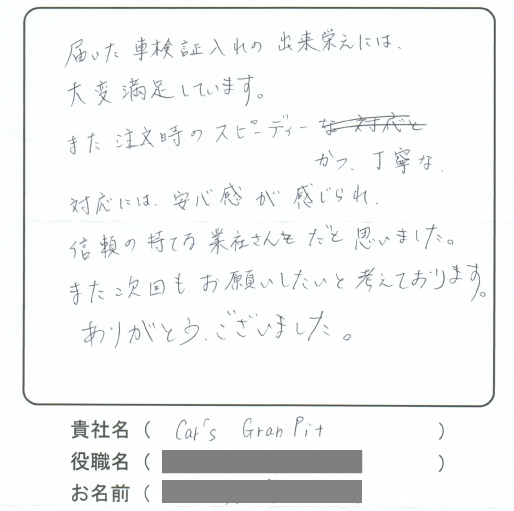 届いた車検証入れの出来栄えには、
大変満足しています。
また注文時のスピーディーな対応と
かつ、丁寧な、
対応には、安心感が感じられ、
信頼の持てる業社さんをだと思いました。
また次回もお願いしたいと考えております。
ありがとう、ございました。
貴社名 ( Car's Gran Pit )
役職名 ( )
お名前 (